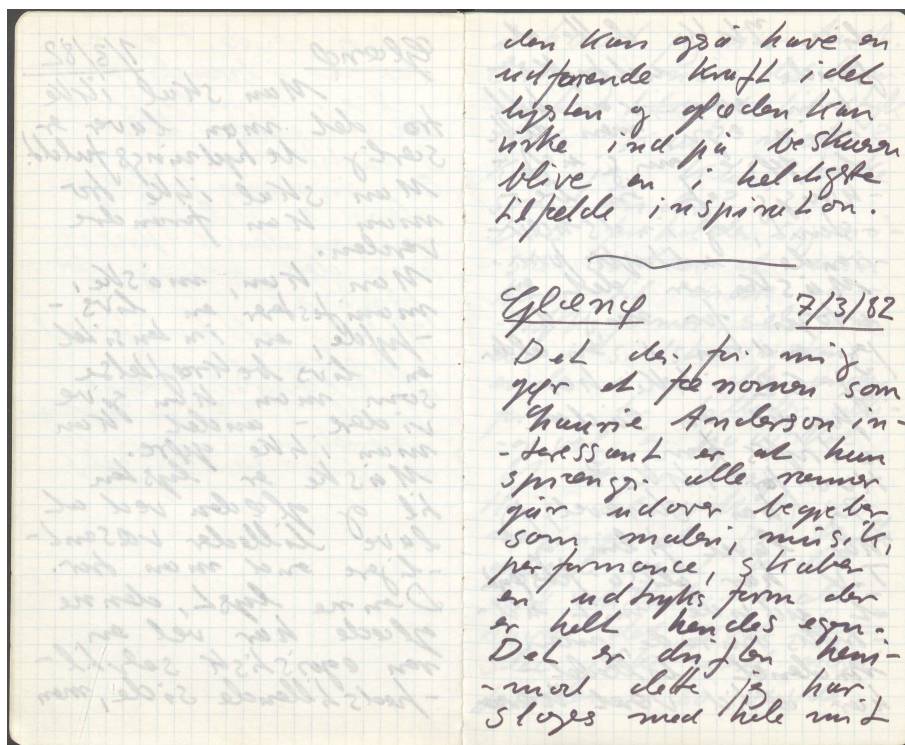 den kan også have en
udfarende kraft idet
lysten og glæden kan
virke ind på beskueren
blive en i heldigste
tilfælde inspiration.
Glænø 7/3/82
Det der for mig
gør et fænomen som
Laurie Anderson in-
-teressant er at hun
sprænger alle rammer
går udover begreber
som maleri, musik,
performance, skaber
en udtryks form der
er helt hendes egen.
Det er driften hen-
-mod dette jeg har
sloges med hele mit